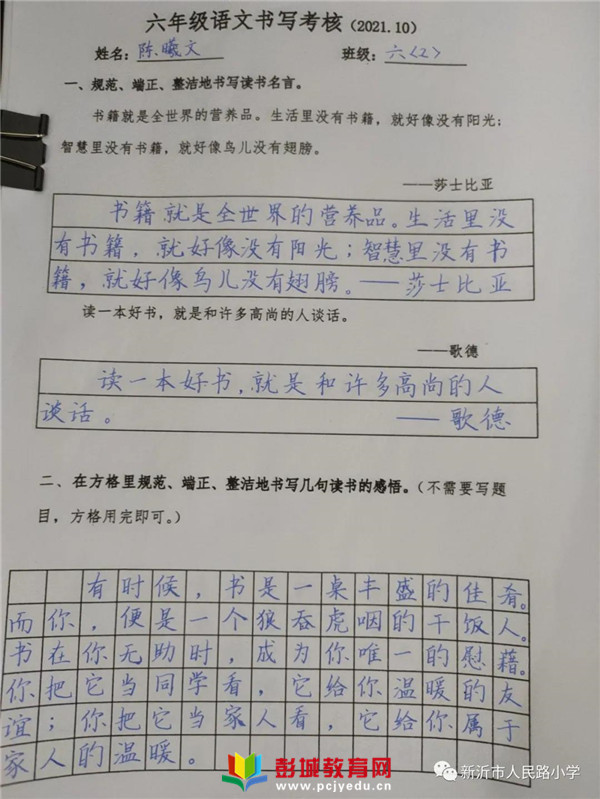 六年级语文书写考核（2021.10）
姓名：陈曦文 班级：六〈2〉
一、规范、端正、整洁地书写读书名言。
书籍就是全世界的营养品。生活里没有书籍，就好像没有阳光；
智慧里没有书籍，就好像鸟儿没有翅膀。
——莎士比亚
书籍就是全世界的营养品。生活里没
有书籍，就好像没有阳光；智慧里没有书
籍，就好像鸟儿没有翅膀。——莎士比亚
读一本好书，就是和许多高尚的人谈话。
——歌德
读一本好书，就是和许多高尚的人
谈话。——歌德
二、在方格里规范、端正、整洁地书写几句读书的感悟。（不需要写题
目，方格用完即可。）
有时候，书是一桌丰盛的佳肴。
而你，便是一个狼吞虎咽的干饭人。
书在你无助时，成为你唯一的慰藉。
你把它当同学看，它给你温暖的友
谊；你把它当家人看，它给你属于
家人的温暖。
彭城教育网
www.pcjyedu.com
新沂市人民路小学